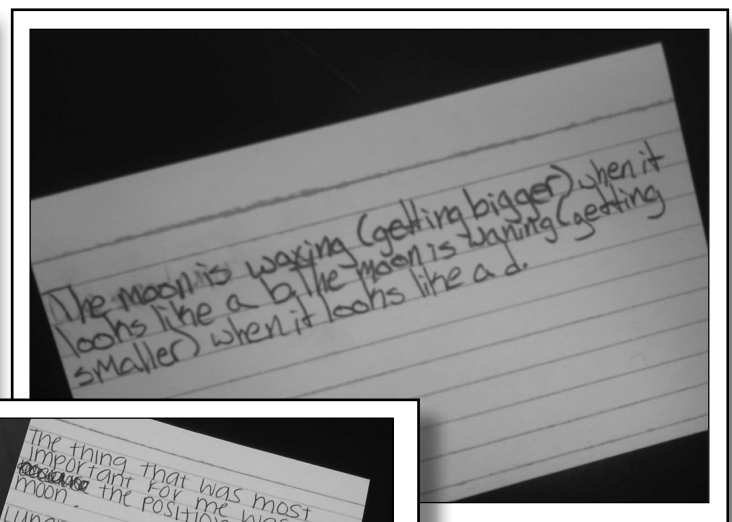 The moon is waxing (getting bigger) when it
looks like a b. The moon is waning (getting
smaller) when it looks like a d.
The thing that was most
important for me was
the position
moon.